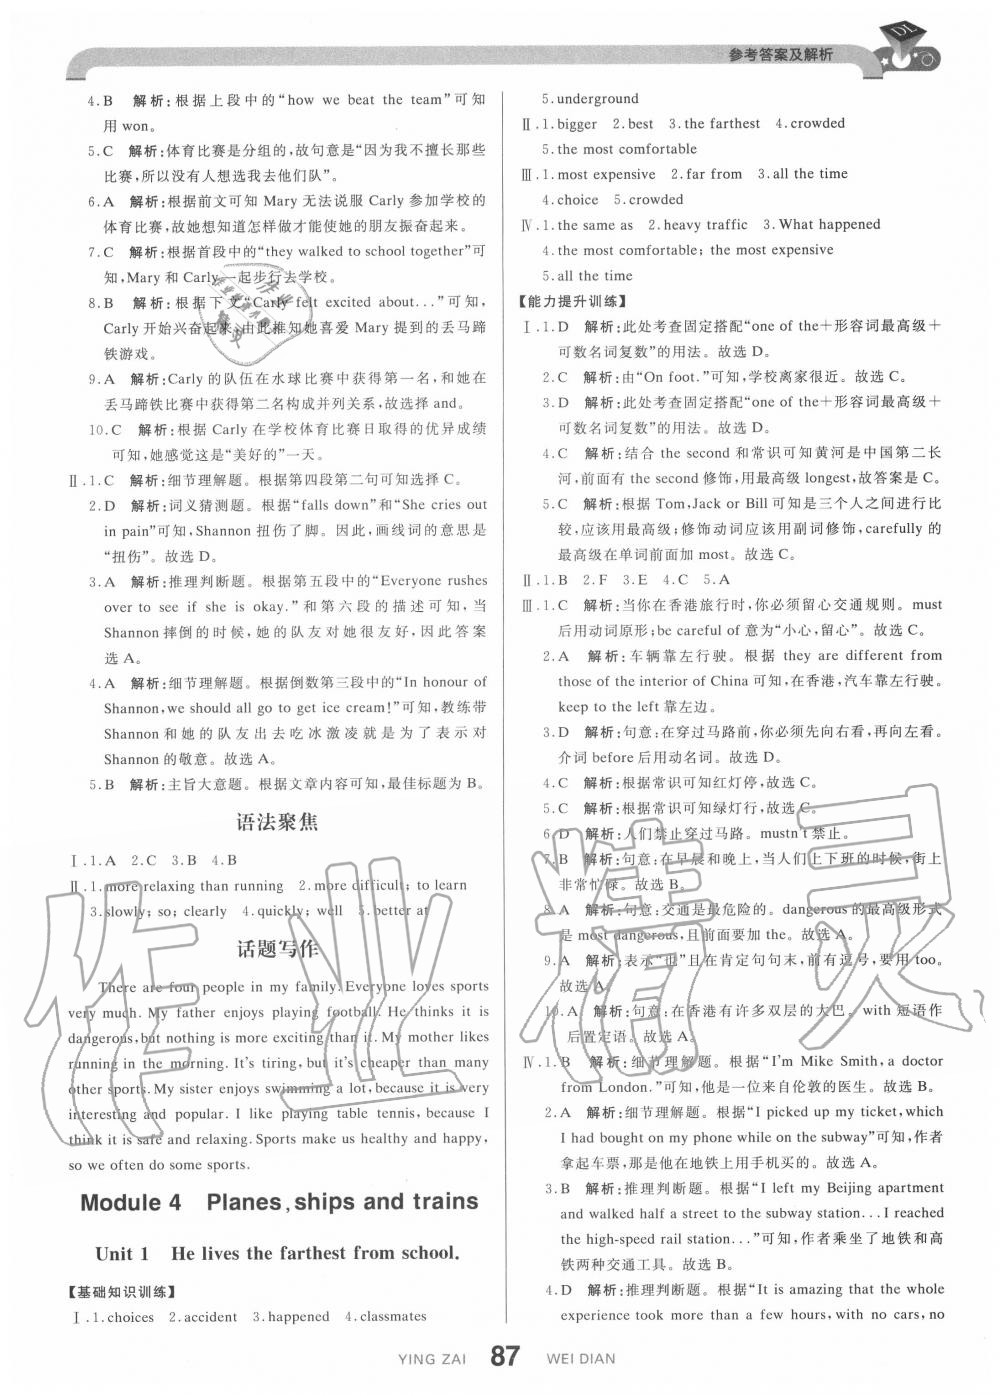 参考答案及解析
DL
4.B 解析:根据上段中的“how we beat the team”可知
用 won。
5.C 解析:体育比赛是分组的,故句意是“因为我不擅长那些
比赛,所以没有人想选我去他们队”。
6.A 解析:根据前文可知 Mary 无法说服 Carly 参加学校的
体育比赛,故她想知道怎样做才能使她的朋友振奋起来。
7.C 解析:根据首段中的“they walked to school together”可
知,Mary 和 Carly 一起步行去学校。
8.B 解析:根据下文“Carly felt excited about...”可知,
Carly 开始兴奋起来,由此推知她喜爱 Mary 提到的丢马蹄
铁游戏。
9.A 解析:Carly 的队伍在水球比赛中获得第一名,和她在
丢马蹄铁比赛中获得第二名构成并列关系,故选择 and。
10.C 解析:根据 Carly 在学校体育比赛日取得的优异成绩
可知,她感觉这是“美好的”一天。
Ⅱ.1.C 解析:细节理解题。根据第四段第二句可知选择 C。
2.D 解析:词义猜测题。根据“falls down”和“She cries out
in pain”可知,Shannon 扭伤了脚。因此,画线词的意思是
“扭伤”。故选 D。
3.A 解析:推理判断题。根据第五段中的“Everyone rushes
over to see if she is okay.”和第六段的描述可知,当
Shannon 摔倒的时候,她的队友对她很友好,因此答案
选 A。
4.A 解析:细节理解题。根据倒数第三段中的“In honour of
Shannon,we should all go to get ice cream!”可知,教练带
Shannon 和她的队友出去吃冰激凌就是为了表示对
Shannon 的敬意。故选 A。
5.B 解析:主旨大意题。根据文章内容可知,最佳标题为 B。
语法聚焦
Ⅰ.1.A 2.C 3.B 4.B
Ⅱ.1.more relaxing than running 2.more difficult; to learn
3.slowly; so; clearly 4.quickly; well 5.better at
话题写作
There are four people in my family. Everyone loves sports
very much. My father enjoys playing football. He thinks it is
dangerous,but nothing is more exciting than it. My mother likes
running in the morning. It's tiring, but it's cheaper than many
other sports. My sister enjoys swimming a lot, because it is very
interesting and popular. I like playing table tennis, because I
think it is safe and relaxing. Sports make us healthy and happy,
so we often do some sports.
Module 4 Planes, ships and trains
Unit 1 He lives the farthest from school.
【基础知识训练】
Ⅰ.1.choices 2.accident 3.happened 4.classmates
5.underground
Ⅱ.1.bigger 2.best 3.the farthest 4.crowded
5.the most comfortable
Ⅲ.1.most expensive 2.far from 3.all the time
4.choice 5.crowded
Ⅳ.1.the same as 2.heavy traffic 3.What happened
4.the most comfortable; the most expensive
5.all the time
【能力提升训练】
Ⅰ.1.D 解析:此处考查固定搭配“one of the+形容词最高级+
可数名词复数”的用法。故选 D。
2.C 解析:由“On foot.”可知,学校离家很近。故选 C。
3.D 解析:此处考查固定搭配“one of the+形容词最高级+
可数名词复数”的用法。故选 D。
4.C 解析:结合 the second 和常识可知黄河是中国第二长
河,前面有 the second 修饰,用最高级 longest,故答案是 C。
5.C 解析:根据 Tom,Jack or Bill 可知是三个人之间进行比
较,应该用最高级;修饰动词应该用副词修饰,carefully 的
最高级在单词前面加 most。故选 C。
Ⅱ.1.B 2.F 3.E 4.C 5.A
Ⅲ.1.C 解析:当你在香港旅行时,你必须留心交通规则。must
后用动词原形;be careful of 意为“小心,留心”。故选 C。
2.A 解析:车辆靠左行驶。根据 they are different from
those of the interior of China 可知,在香港,汽车靠左行驶。
keep to the left 靠左边。
3.D 解析:句意:在穿过马路前,你必须先向右看,再向左看。
介词 before 后用动名词。故选 D。
4.C 解析:根据常识可知红灯停,故选 C。
5.C 解析:根据常识可知绿灯行,故选 C。
6.D 解析:人们禁止穿过马路。mustn't 禁止。
7.B 解析:句意:在早晨和晚上,当人们上下班的时候,街上
非常忙碌。故选 B。
8.A 解析:句意:交通是最危险的。dangerous 的最高级形式
是 most dangerous,且前面要加 the。故选 A。
9.A 解析:表示“也”且在肯定句句末,前有逗号,要用 too。
故选 A。
10.A 解析:句意:在香港有许多双层的大巴。with 短语作
后置定语。故选 A。
Ⅳ.1.B 解析:细节理解题。根据“I'm Mike Smith,a doctor
from London.”可知,他是一位来自伦敦的医生。故选 B。
2.A 解析:细节理解题。根据“I picked up my ticket,which
I had bought on my phone while on the subway”可知,作者
拿起车票,那是他在地铁上用手机买的。故选 A。
3.B 解析:推理判断题。根据“I left my Beijing apartment
and walked half a street to the subway station...I reached
the high-speed rail station...”可知,作者乘坐了地铁和高
铁两种交通工具。故选 B。
4.D 解析:推理判断题。根据“It is amazing that the whole
experience took more than a few hours, with no cars, no
YING ZAI 87 WEI DIAN
作业精灵